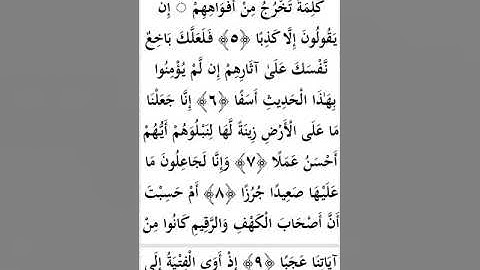 كَلِمَةً تَخْرُجُ مِنْ أَفْوَاهِهِمْ ۚ إِن
يَقُولُونَ إِلَّا كَذِبًا ﴿٥﴾ فَلَعَلَّكَ بَاخِعٌ
نَّفْسَكَ عَلَىٰ آثَارِهِمْ إِن لَّمْ يُؤْمِنُوا
بِهَٰذَا الْحَدِيثِ أَسَفًا ﴿٦﴾ إِنَّا جَعَلْنَا
مَا عَلَى الْأَرْضِ زِينَةً لَّهَا لِنَبْلُوَهُمْ أَيُّهُمْ
أَحْسَنُ عَمَلًا ﴿٧﴾ وَإِنَّا لَجَاعِلُونَ مَا
عَلَيْهَا صَعِيدًا جُرُزًا ﴿٨﴾ أَمْ حَسِبْتَ
أَنَّ أَصْحَابَ الْكَهْفِ وَالرَّقِيمِ كَانُوا مِنْ
آيَاتِنَا عَجَبًا ﴿٩﴾ إِذْ أَوَى الْفِتْيَةُ إِلَى